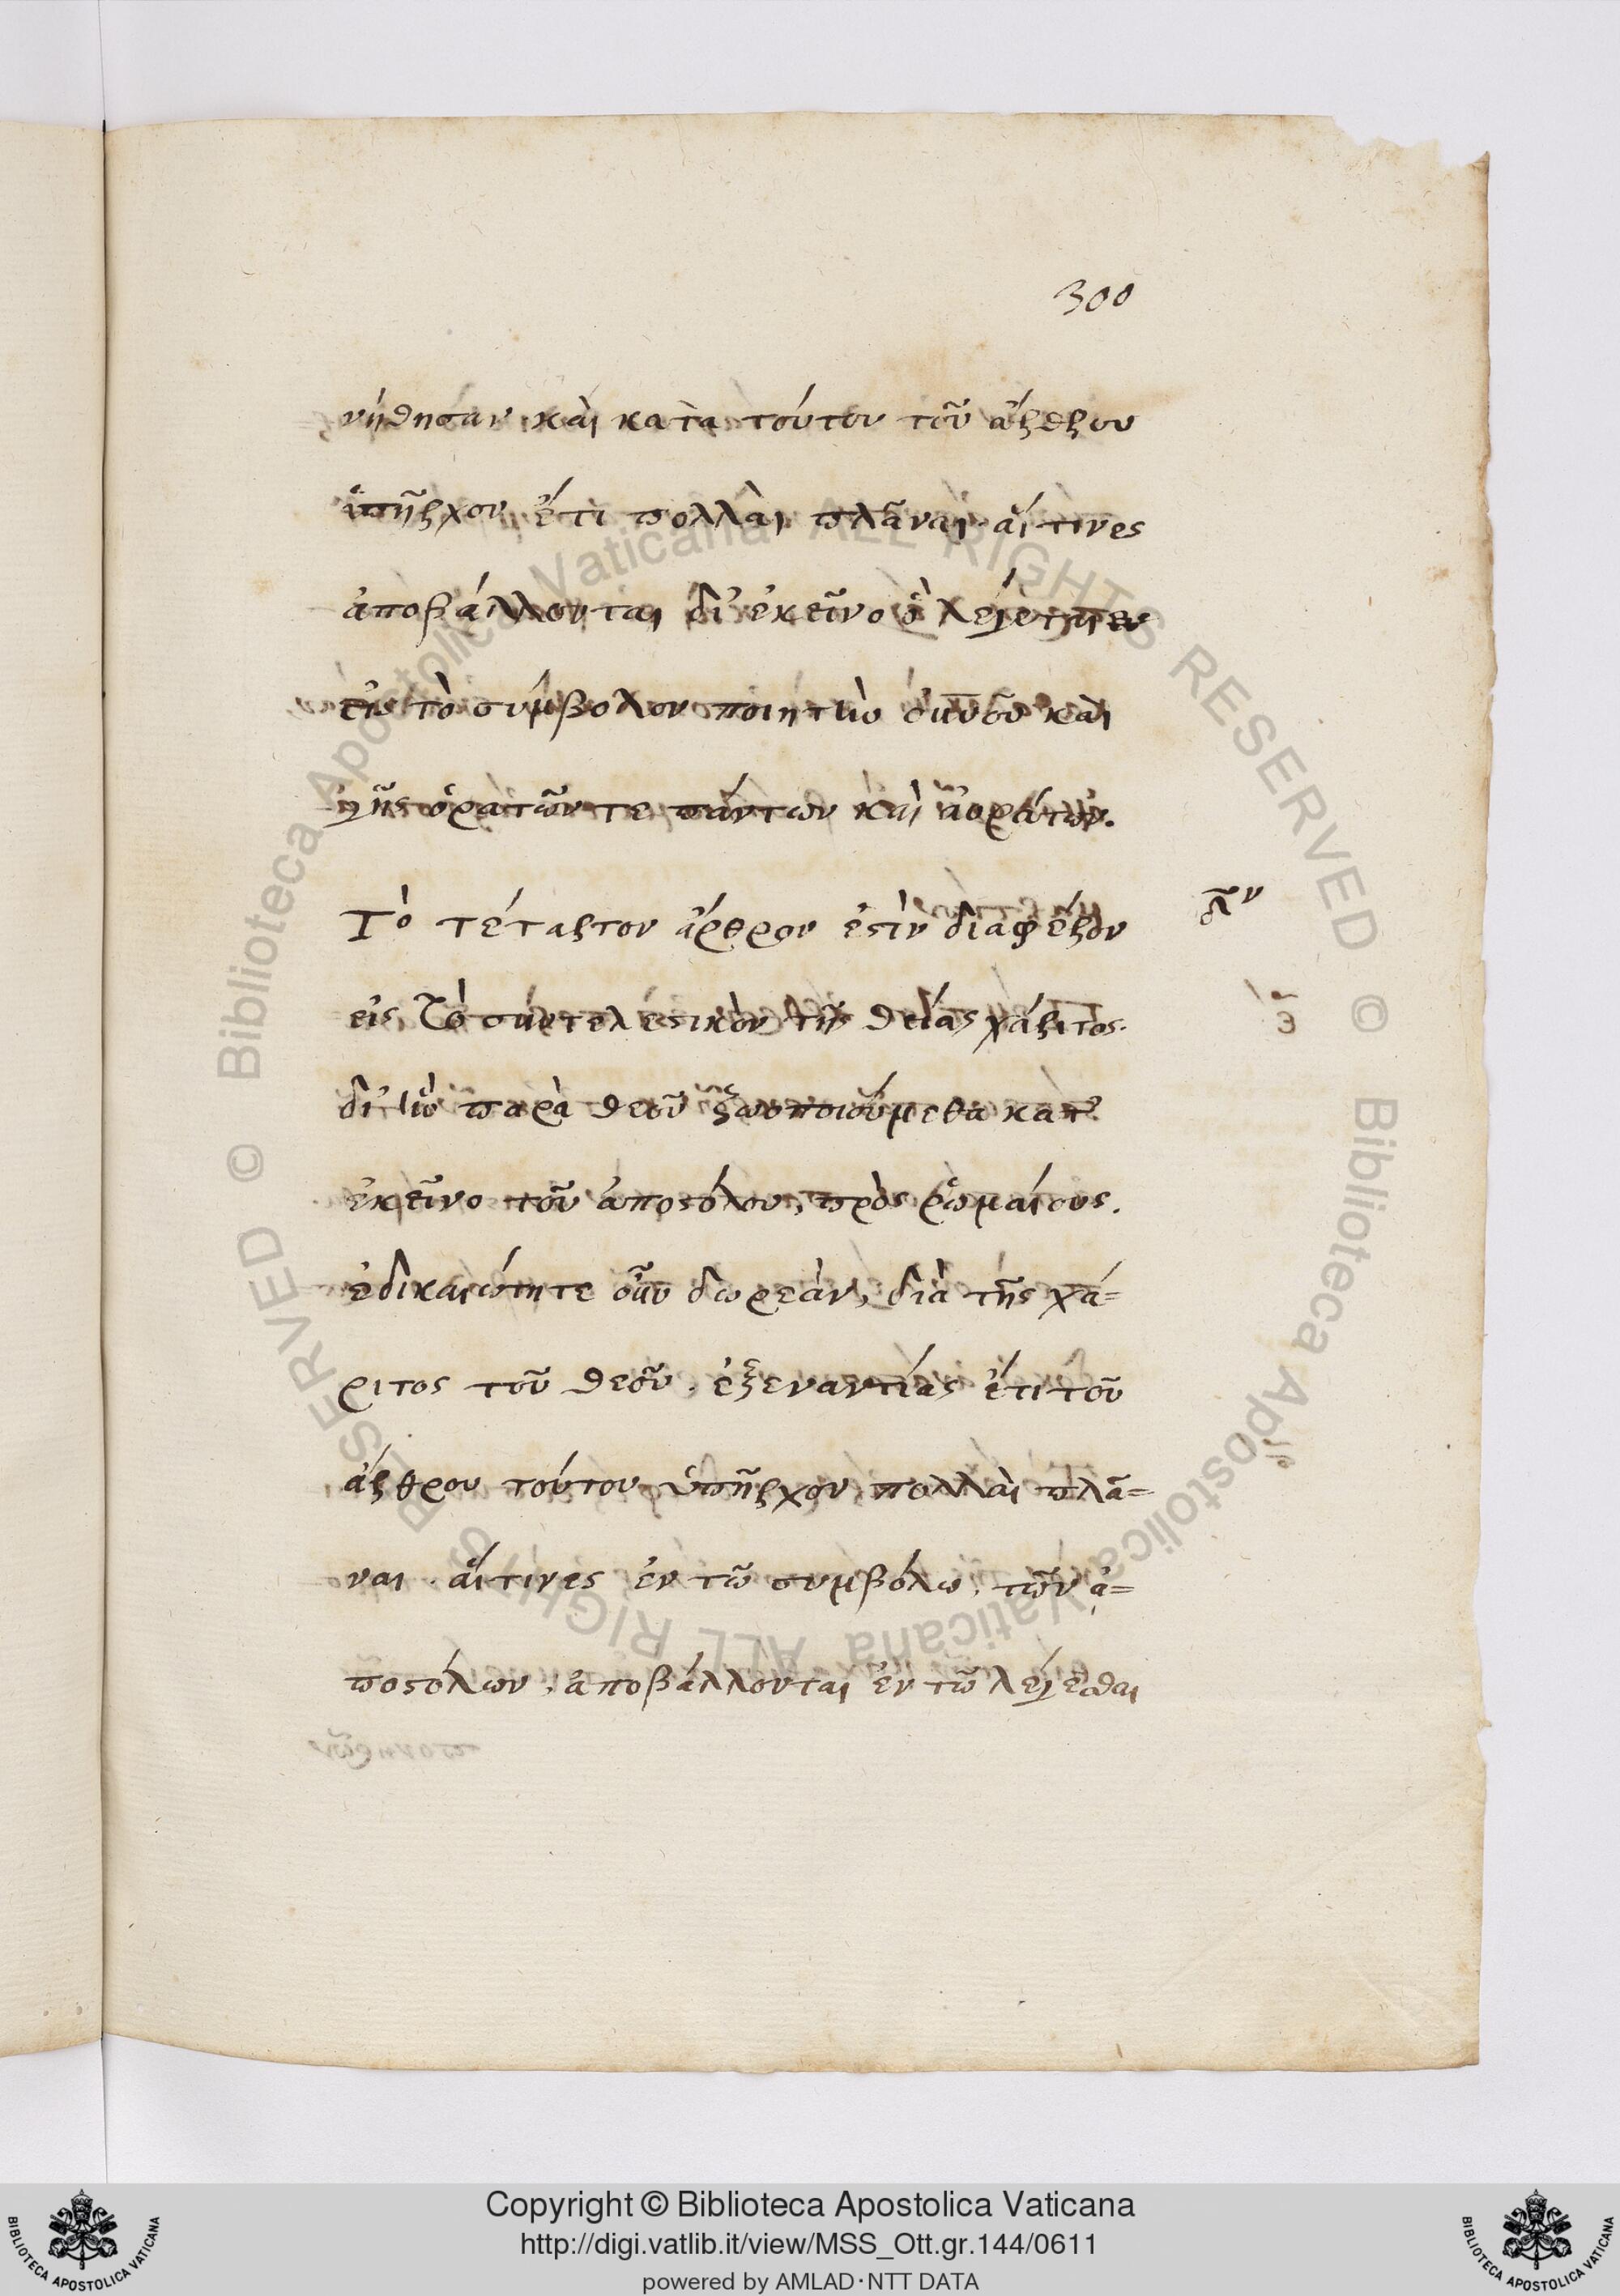 300
νήθησαν καὶ κατὰ τούτου τοῦ ἄρθρου
ὑπῆρχον ἔτι πολλαὶ πλᾶναι· αἵτινες
ἀποβάλλονται δι' ἐκεῖνο ὃ λέγεται
εἰς τὸ σύμβολον ποιητὴν οὐρανοῦ καὶ
γῆς ὁρατῶν τε πάντων καὶ ἀοράτων.
Τὸ τέταρτον ἄρθρον ἐστὶν διαφέρον
δ̅ον
εἰς τὸ συντελεστικὸν τῆς θείας χάριτος·
δι' ἣν παρὰ θεοῦ ζωοποιούμεθα κατ'
ἐκεῖνο τοῦ ἀποστόλου, πρὸς ῥωμαίους.
ἐδικαιώτητε οὖν δωρεὰν, διὰ τῆς χά=
ριτος τοῦ θεοῦ. ἐξεναντίας ἔτι τοῦ
ἄρθρου τούτου ὑπῆρχον πολλαὶ πλᾶ=
ναι. αἵτινες ἐν τῶ συμβόλω, τῶν ἀ=
ποστόλων, ἀποβάλλονται ἐν τῶ λέγεσθαι
© Biblioteca Apostolica Vaticana ALL RIGHTS RESERVED
© Biblioteca Apostolica Vaticana ALL RIGHTS RESERVED
Copyright © Biblioteca Apostolica Vaticana
http://digi.vatlib.it/view/MSS_Ott.gr.144/0611
powered by AMLAD·NTT DATA
BIBLIOTECA APOSTOLICA VATICANA
BIBLIOTECA APOSTOLICA VATICANA